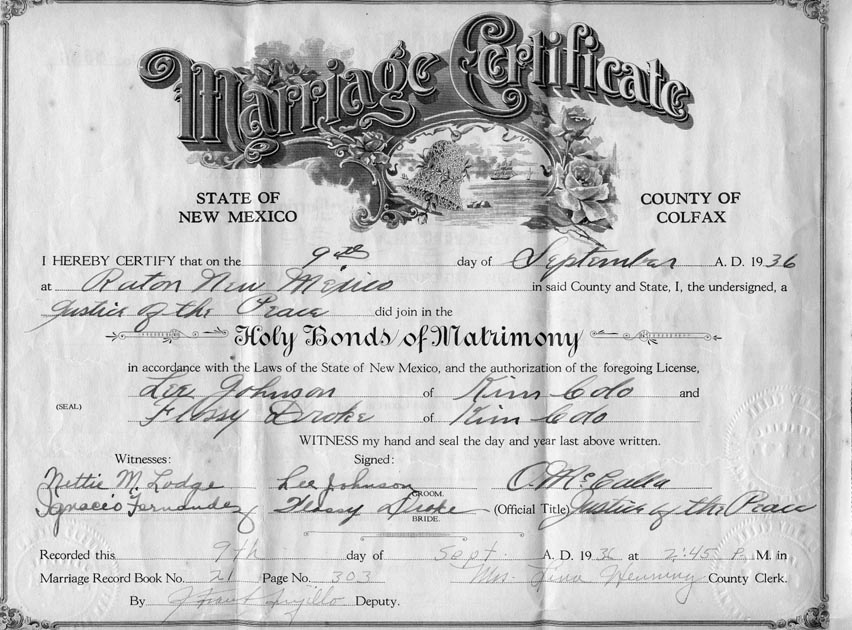 Marriage Certificate
STATE OF NEW MEXICO
COUNTY OF COLFAX
I HEREBY CERTIFY that on the 9th day of September A. D. 1936
at Raton New Mexico in said County and State, I, the undersigned, a
Justice of the Peace did join in the
Holy Bonds of Matrimony
in accordance with the Laws of the State of New Mexico, and the authorization of the foregoing License,
Lee Johnson of Kim Colo and
(SEAL)
Flossy Droke of Kim Colo
WITNESS my hand and seal the day and year last above written.
Witnesses: Signed:
Nettie M. Lodge Lee Johnson O. McCalla
GROOM.
Ignacio Fernandez Flossy Droke (Official Title) Justice of the Peace
BRIDE.
Recorded this 9th day of Sept. A. D. 1936 at 2:45 P. M. in
Marriage Record Book No. 21 Page No. 303 Mrs. Henning County Clerk.
By Trujillo Deputy.